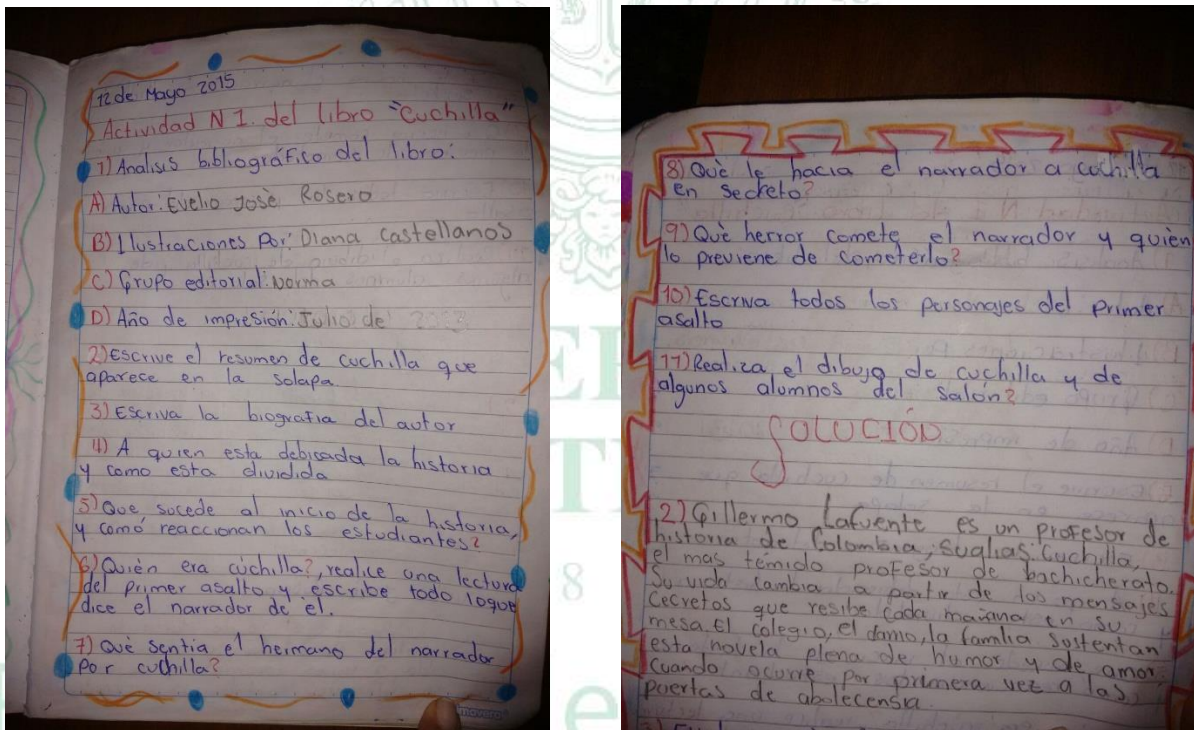 12 de Mayo 2015
Actividad N 1. del libro "Cuchilla"
1) Analisis bibliográfico del libro:
A) Autor: Evelio Josè Rosero
B) Ilustraciones Por: Diana Castellanos
C) Grupo editorial: Norma
D) Año de impresión: Julio de
2) Escrive el resumen de cuchilla que
aparece en la solapa
3) Escriva la biografia del autor
4) A quien esta debicada la historia
y como esta dividida
5) Que sucede al inicio de la historia,
y comó reaccionan los estudiantes?
6) Quièn era cùchilla?, realice una lectura
del primer asalto y escribe todo loque
dice el narrador de el.
7) Què sentia el heimano del narrador
Por cuchilla?
8) Què le hacia el narrador a cuchilla
en secreto?
9) Què herror comete el narrador y quièn
lo previene de cometerlo?
10) Escriva todos los personajes del primer
asalto
11) Realiza el dibujo de cuchilla y de
algunos alumnos del salón?
SOLUCIÓN
2) Gillermo Lafuente es un profesor de
historia de Colombia, Suglias: Cuchilla,
el mas temido profesor de bachicherato.
Su vida cambia a partir de los mensajes
Cecretos que resibe cada mañana en su
mesa. El colegio, el damo, la familia sostentan
esta novela plena de humor y de amor,
cuando ocurre por primera vez a las
puertas de abolecensia.